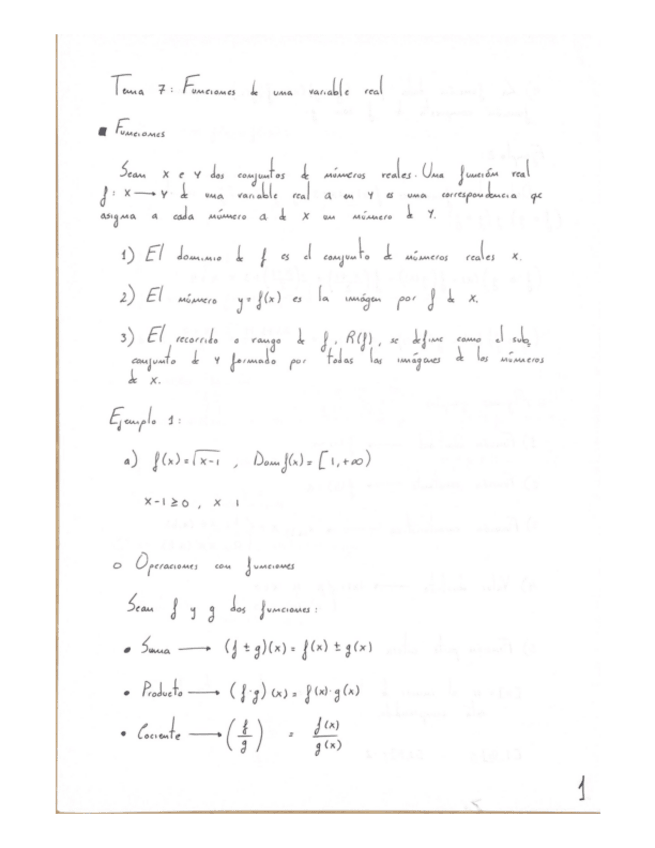 Tema 7: Funciones de una variable real
■ Funciones
Sean X e Y dos conjuntos de números reales. Una función real
f: X → Y de una variable real a en Y es una correspondencia qe
asigna a cada número a de X un número de Y.
1) El dominio de f es el conjunto de números reales X.
2) El número y=f(x) es la imágen por f de X.
3) El recorrido o rango de f, R(f), se define como el sub
conjunto de Y formado por todas las imágenes de los números
de X.
Ejemplo 1:
a) f(x)=√x-1 , Dom f(x)=[1,+∞)
x-1≥0 , x 1
o Operaciones con funciones
Sean f y g dos funciones:
• Suma → (f ± g)(x) = f(x) ± g(x)
• Producto → (f·g)(x) = f(x)·g(x)
• Cociente → (f/g) = f(x)/g(x)
1